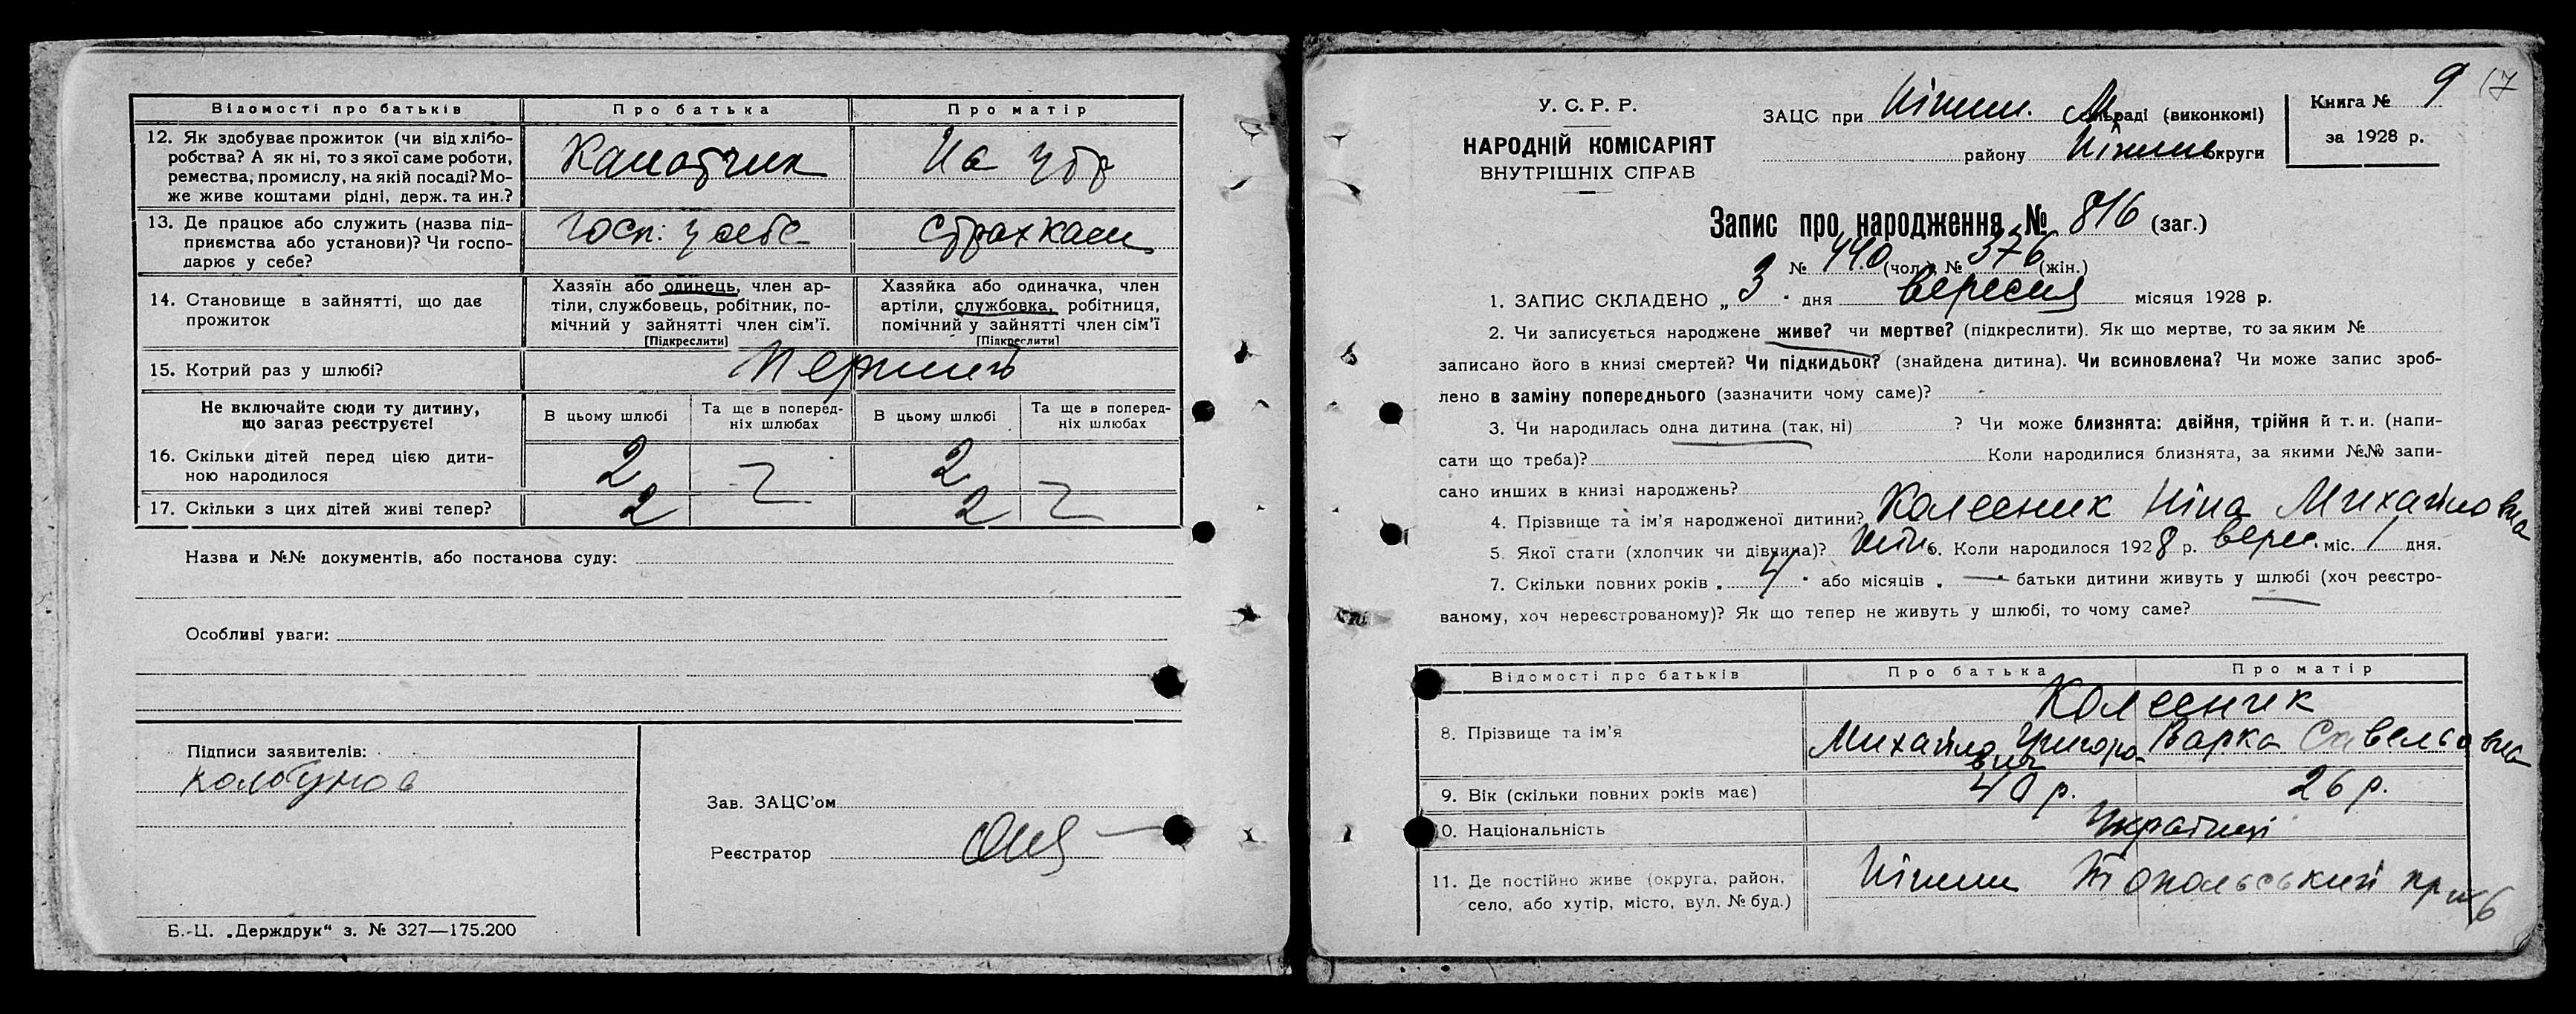 Відомості про батьків Про батька Про матір
12. Як здобуває прожиток (чи від хлібо-
робства? А як ні, то з якої саме роботи,
ремества, промислу, на якій посаді? Мо-
же живе коштами рідні, держ. та ин.?
Канатчик
13. Де працює або служить (назва під-
приємства або установи)? Чи госпо-
дарює у себе?
госп: у себе страхкаси
14. Становище в зайнятті, що дає
прожиток
Хазяїн або одинець, член ар-
тіли, службовець, робітник, по-
мічний у зайнятті член сім'ї.
[Підкреслити]
Хазяйка або одиначка, член
артіли, службовка, робітниця,
помічний у зайнятті член сім'ї
[Підкреслити]
15. Котрий раз у шлюбі?
Не включайте сюди ту дитину,
що зараз реєструєте!
В цьому шлюбі Та ще в поперед-
ніх шлюбах В цьому шлюбі Та ще в поперед-
ніх шлюбах
16. Скільки дітей перед цією дити-
ною народилося
2 2
17. Скільки з цих дітей живі тепер?
2 2
Назва и №№ документів, або постанова суду:
Особливі уваги:
Підписи заявителів:
Зав. ЗАЦС'ом
Реєстратор
Б.-Ц. „Держдрук“ з. № 327—175.200
9 17
У. С. Р. Р.
НАРОДНІЙ КОМІСАРІЯТ
ВНУТРІШНІХ СПРАВ
ЗАЦС при Ніжин. раді (виконкомі)
району Ніжин округи
Книга № 9
за 1928 р.
Запис про народження № 816 (заг.)
№ 440 (чол.) № 376 (жін.)
1. ЗАПИС СКЛАДЕНО „ 3 " дня вересня місяця 1928 р.
2. Чи записується народжене живе? чи мертве? (підкреслити). Як що мертве, то за яким №
записано його в книзі смертей? Чи підкидьок? (знайдена дитина). Чи всиновлена? Чи може запис зроб-
лено в заміну попереднього (зазначити чому саме)?
3. Чи народилась одна дитина (так, ні) ? Чи може близнята: двійня, трійня й т. и. (напи-
сати що треба)? Коли народилися близнята, за якими №№ запи-
сано инших в книзі народжень?
4. Прізвище та ім'я народженої дитини? Колесник Ніна Михайловна
5. Якої стати (хлопчик чи дівчина)? жін 6. Коли народилося 1928 р. верес. міс. 1 дня.
7. Скільки повних років „ 4 " або місяців „ — " батьки дитини живуть у шлюбі (хоч реєстро-
ваному, хоч нереєстрованому)? Як що тепер не живуть у шлюбі, то чому саме?
Відомості про батьків Про батька Про матір
Колесник
8. Прізвище та ім'я Михайло Григоро-
вич Варка Савельовна
9. Вік (скільки повних років має) 40 р. 26 р.
10. Національність Українці
11. Де постійно живе (округа, район,
село, або хутір, місто, вул. № буд.)
Ніжин Топольський